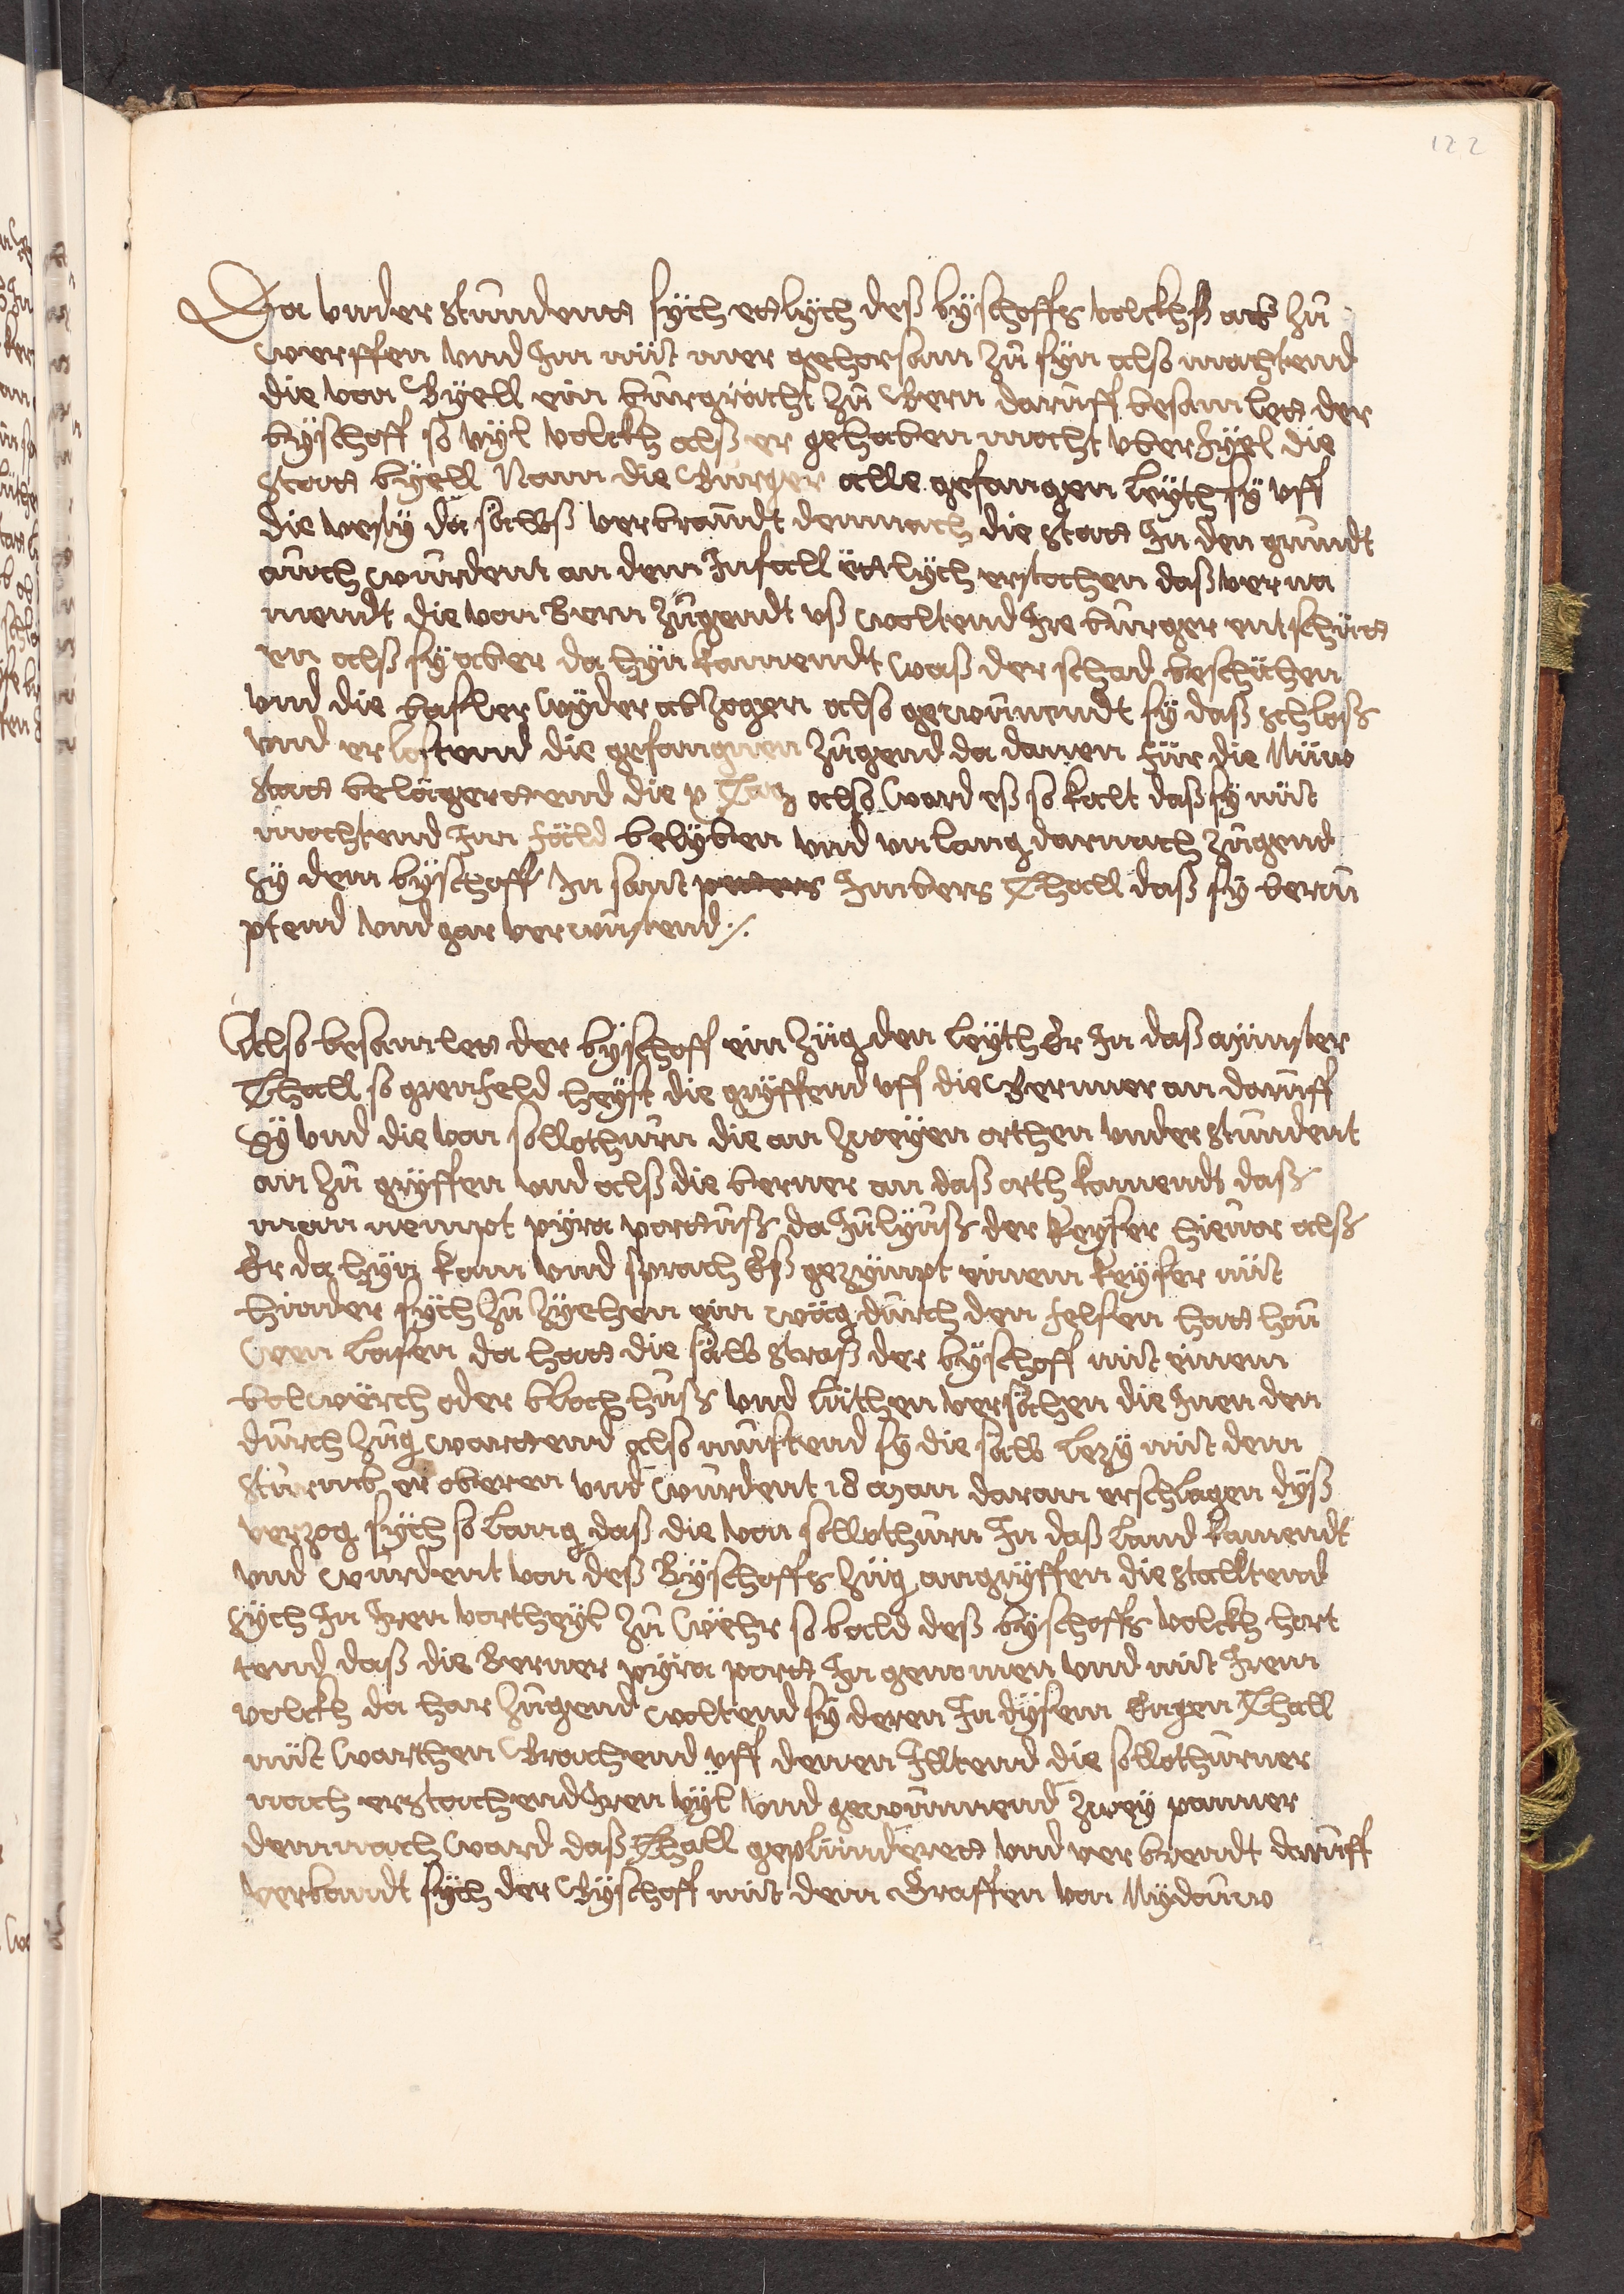 122
Da vnder stundent sÿch etlÿch deß bÿschoffs volckhß ab zů
werffen vnd Im nüt mer gehorsam zů sÿn also machtend
die von Bÿell ein burgrächt zů Bern daruff besamlet der
bÿschoff so vÿl volckh alß er gehaben mocht vberfÿel die
statt bÿell Nam die Burger alle gefangen leÿth sÿ vff
die vesty da selbß verbrandt demnach die statt In den grundt
auch wurdent an dem Infall ettlÿch erstochen daß verna
mendt die von Bern Zugendt vß woltend Ire burger entschüt
en alß sÿ aber da hÿn kamendt waß der schad beschächen
vnd die baßler wÿder abzogen also gewunendt sÿ daß schloß
vnd erlostend die gefangnen Zugend da danen für die Nüw
statt belägerttend die x Tag also ward eß so kalt daß sÿ nüt
mochtend Im fäld belÿben vnd vnlang darnach zugend
sÿ dem bÿschoff In sant petters Imbers Thall daß sÿ berau
ptend vnd gar verwustend ⁒
Also besamlet der bÿschoff ein Züg den leÿth Er In daß münster
Thall so grenfeld heÿst die grÿffend vff die Bernner an daruff
sÿ vnd die von sollothurn die an zweÿen orthen vnder stundent
an zů grÿffen vnd alß die berner an daß orth kamendt daß
man nempt pÿra porttuß da Julÿuß der keÿser hieuor alß
Er da hÿn kam vnd sprach Eß gezÿmpt einem keÿser nüt
hinder sÿch zů zÿehen ein wäg durch den felsen hatt hou
wen lasen da hatt die selb straß der bÿschoff mit einem
bolwerch oder bloch huß vnd lüthen versächen die Inen den
durch Zug warttend also mustend sÿ die selb lezÿ mit dem
sturmb er oberen vnd wurdent 18 man daran erschlagen dÿß
verzog sÿch so lang daß die von sollothurn In daß land kamendt
vnd wurdent von deß Bÿschoffs Züg angrÿffen die stalltend
sÿch In Iren vortheÿl Zů wehr so bald deß bÿschoffs volckh hort
tend daß die Berner pÿra port In genomen vnd mit Irem
volckh da har Zugend woltend sÿ deren In dÿsem Engen Thall
nüt warthen Brachend vff denen Illtend die sollothurner
nach erstachend Iren vÿl vnd gewunnend zweÿ panner
demnach ward daß Thall geplünderet vnd verbrendt daruff
verbandt sÿch der Bÿschoff mit dem Graffen von Nÿdauw